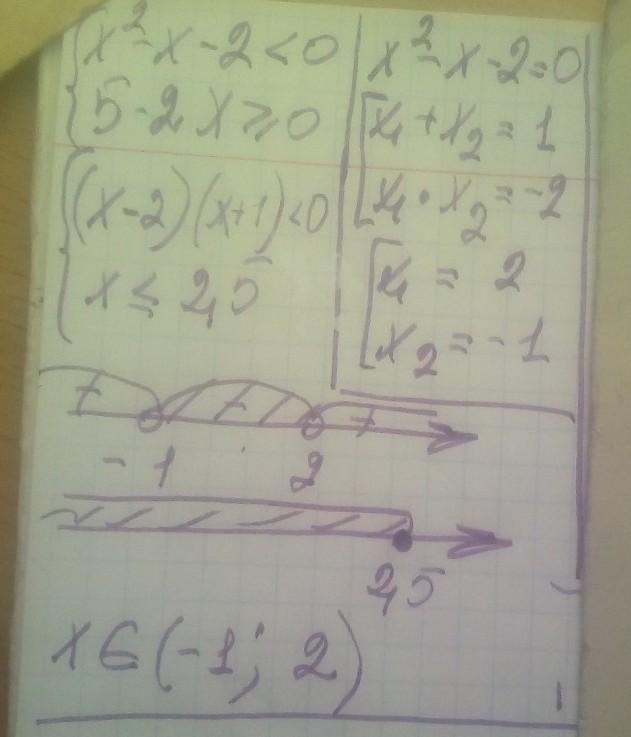 x² - x - 2 < 0
5 - 2x ⩾ 0
(x-2)(x+1) < 0
x ≤ 2,5
x² - x - 2 = 0
x₁ + x₂ = 1
x₁ • x₂ = -2
x₁ = 2
x₂ = -1
+ - +
-1 2
2,5
x ∈ (-1; 2)